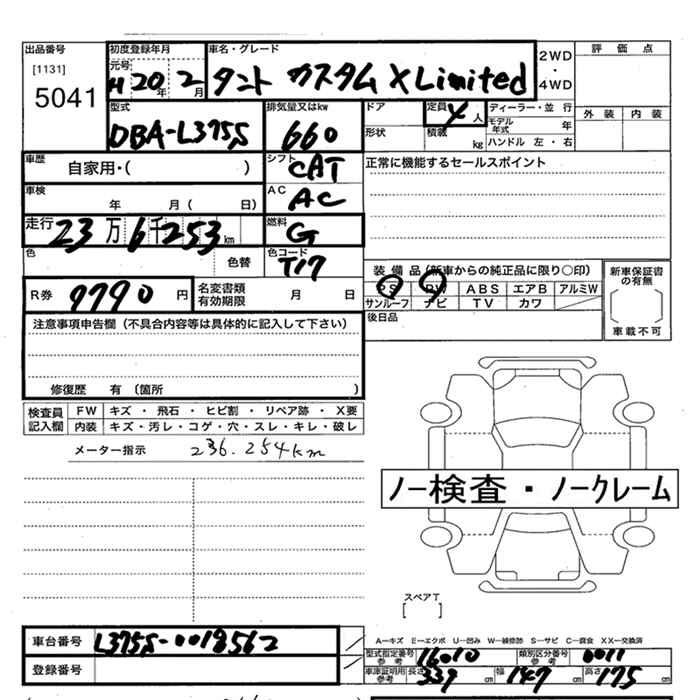 出品番号 初度登録年月 車名・グレード 2WD・4WD 評価点
[1131] 元号 H20年2月 タント カスタム X Limited
5041
型式 排気量又はkw ドア 定員 4人 ディーラー・並行
DBA-L375S 660 形状 積載 kg モデル年式 年
ハンドル 左・右 外装 内装
車歴 自家用・( ) シフト CAT 正常に機能するセールスポイント
車検 年 月( 日) AC AC
走行 23万6千253km 燃料 G
色 色替 色コード T17
装備品(新車からの純正品に限り○印) 新車保証書の有無
R券 9790円 名変書類有効期限 月 日 PS PW ABS エアB アルミW
サンルーフ ナビ TV カワ
車載不可
注意事項申告欄(不具合内容等は具体的に記入して下さい) 後日品
修復歴 有(箇所 )
検査員記入欄 FW キズ・飛石・ヒビ割・リペア跡・X要
内装 キズ・汚レ・コゲ・穴・スレ・キレ・破レ
メーター指示 236.254km
ノー検査・ノークレーム
スペアT
[ ]
A―キズ E―エクボ U―凹み W―補修跡 S―サビ C―腐食 XX―交換済
車台番号 L375S-0018562 型式指定番号参考 16010 類別区分番号参考 0011
登録番号 車庫証明用参考 長さ 339cm 幅 147cm 高さ 175cm